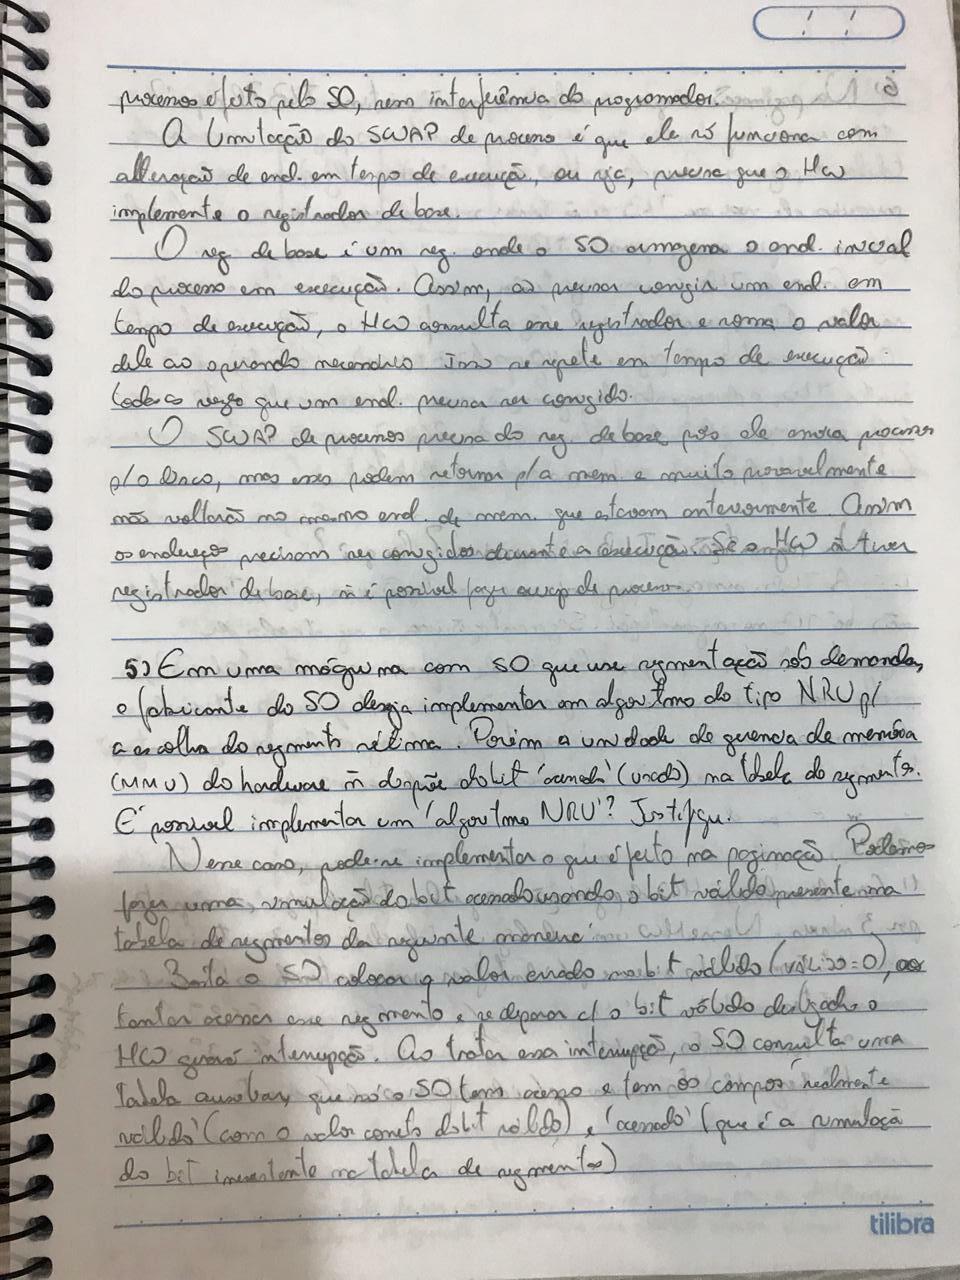 processos é feito pelo SO, sem interferência do programador.
A limitação do SWAP de processo é que ele só funciona com
alteração de end. em tempo de execução, ou seja, precisa que o HW
implemente o registrador de base.
O reg de base é um reg. onde o SO armazena o end. inicial
do processo em execução. Assim, ao precisar corrigir um end. em
tempo de execução, o HW consulta esse registrador e soma o valor
dele ao operando necessário. Isso se repete em tempo de execução
todas as vezes que um end. precisa ser corrigido.
O SWAP de processos precisa do reg. de base, pois ele envia processos
p/ o disco, mas esses podem retornar p/ a mem. e muito provavelmente
não voltarão no mesmo end. de mem. que estavam anteriormente. Assim
os endereços precisam ser corrigidos durante a execução. Se o HW ñ tiver
registrador de base, ñ é possível fazer swap de processo.
5) Em uma máquina com SO que use segmentação sob demanda,
o fabricante do SO deseja implementar um algoritmo do tipo NRU p/
a escolha do segmento vítima. Porém a unidade de gerencia de memória
(MMU) do hardware ñ dispõe do bit 'acessado' (usado) na tabela de segmentos.
É possível implementar um 'algoritmo NRU'? Justifique.
Nesse caso, pode-se implementar o que é feito na paginação. Podemos
fazer uma simulação do bit acessado usando o bit válido presente na
tabela de segmentos da seguinte maneira:
Basta o SO colocar o valor errado no bit válido (válido=0), ao
tentar acessar esse segmento e se deparar c/ o bit válido desligado o
HW gerará interrupção. Ao tratar essa interrupção, o SO consulta uma
tabela auxiliar, que só o SO tem acesso e tem os campos 'realmente
válido' (com o valor correto do bit válido) e 'acessado' (que é a simulação
do bit inexistente na tabela de segmentos)
tilibra